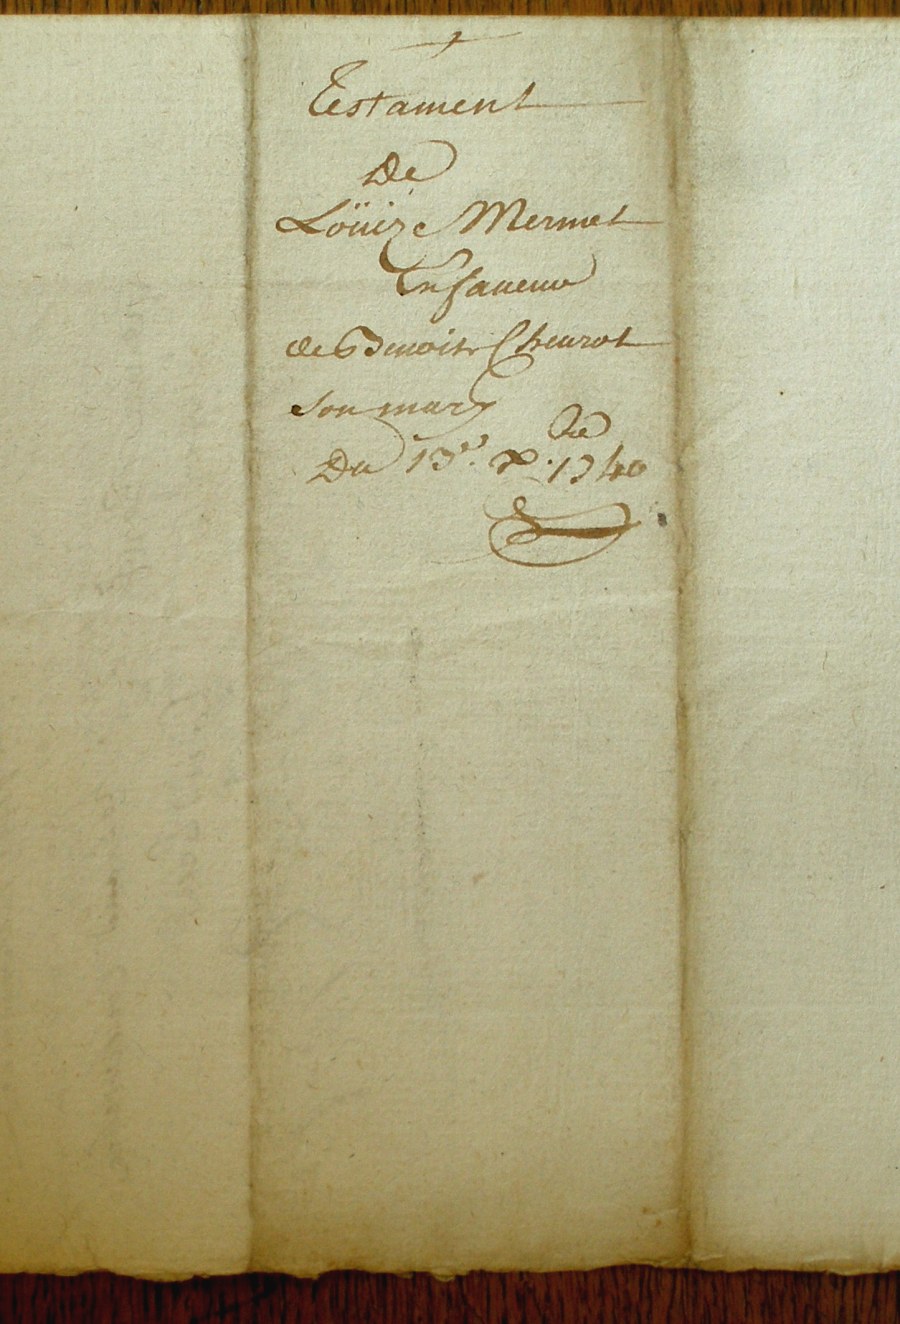 Testament
De
Loüize Mermet
En faueur
de Benoit Cheurot
son mary
Du 13e. Xbre 1740